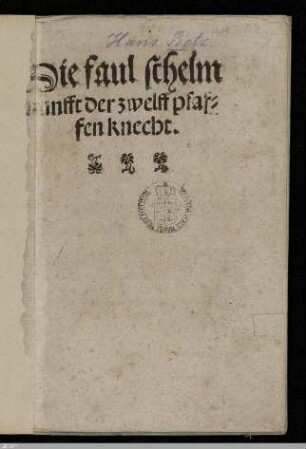 Hans Betz
Die faul schelm
zunfft der zwelff pfaf⸗
fen knecht.